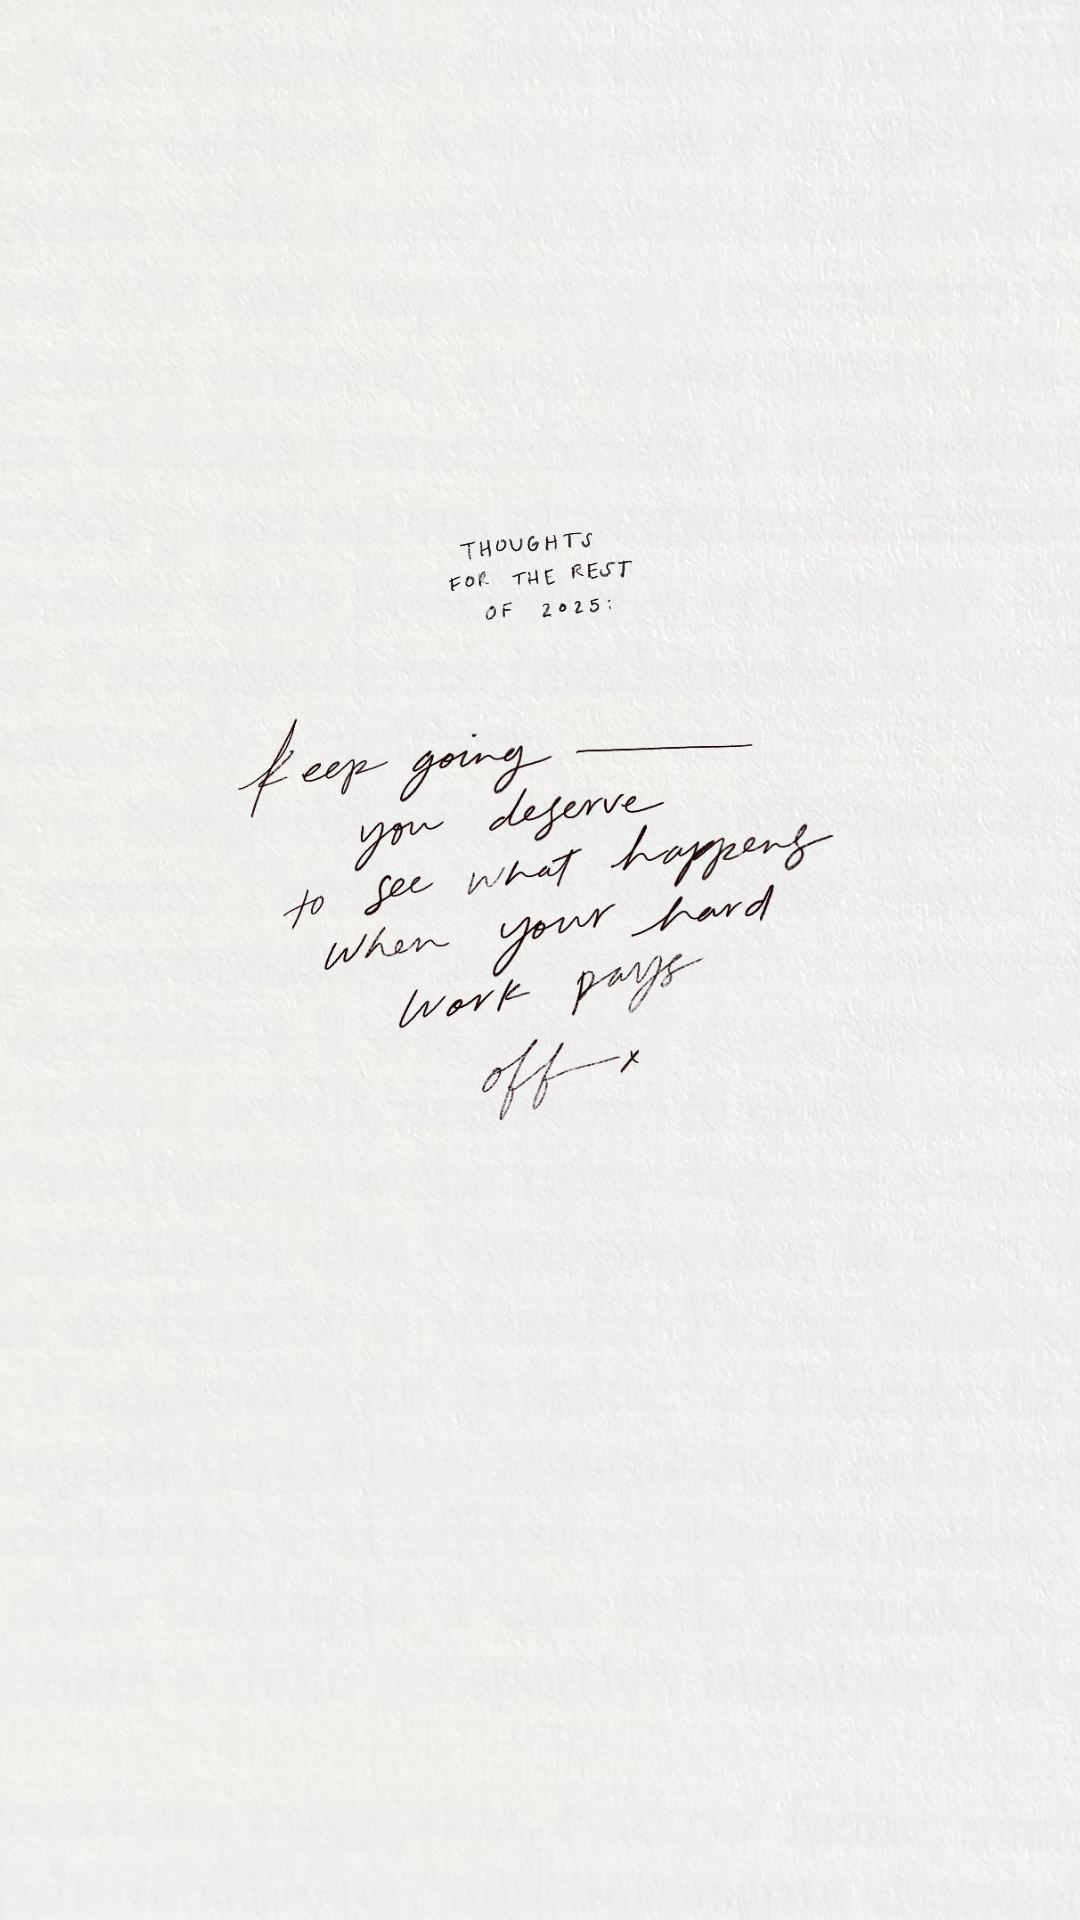 THOUGHTS
FOR THE REST
OF 2025:
Keep going —
you deserve
to see what happens
when your hard
work pays
off x